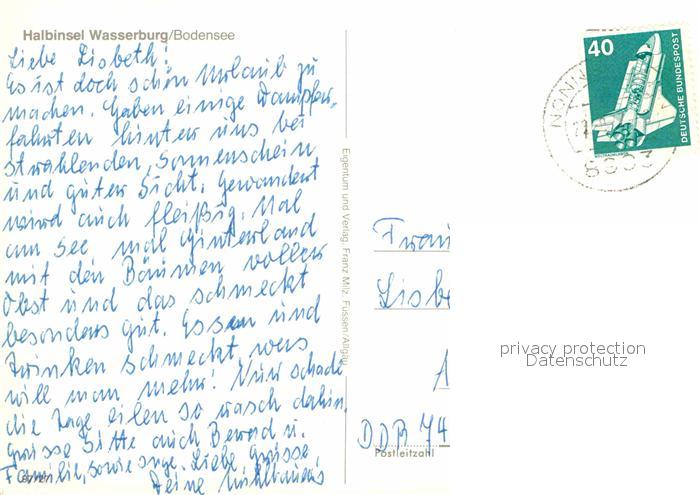 Halbinsel Wasserburg/Bodensee
Liebe Lisbeth!
Es ist doch schön Urlaub zu
machen. Haben einige Dampfer-
fahrten hinter uns bei
strahlenden Sonnenschein
und guter Sicht. Gewandert
wird auch fleißig. Mal
am See, mal Hinterland
mit den Bäumen voller
Obst und das schmeckt
besonders gut. Essen und
Trinken schmeckt, was
will man mehr! Nur schade
die Tage eilen so rasch dahin.
Grüsse bitte auch Bernd u.
Familie, sowie Liebe Grüsse
Deine
Eigentum und Verlag Franz Milz, Füssen/Allgäu
40
DEUTSCHE BUNDESPOST
Frau
Lisbe
A
DDR 74
Postleitzahl
privacy protection
Datenschutz